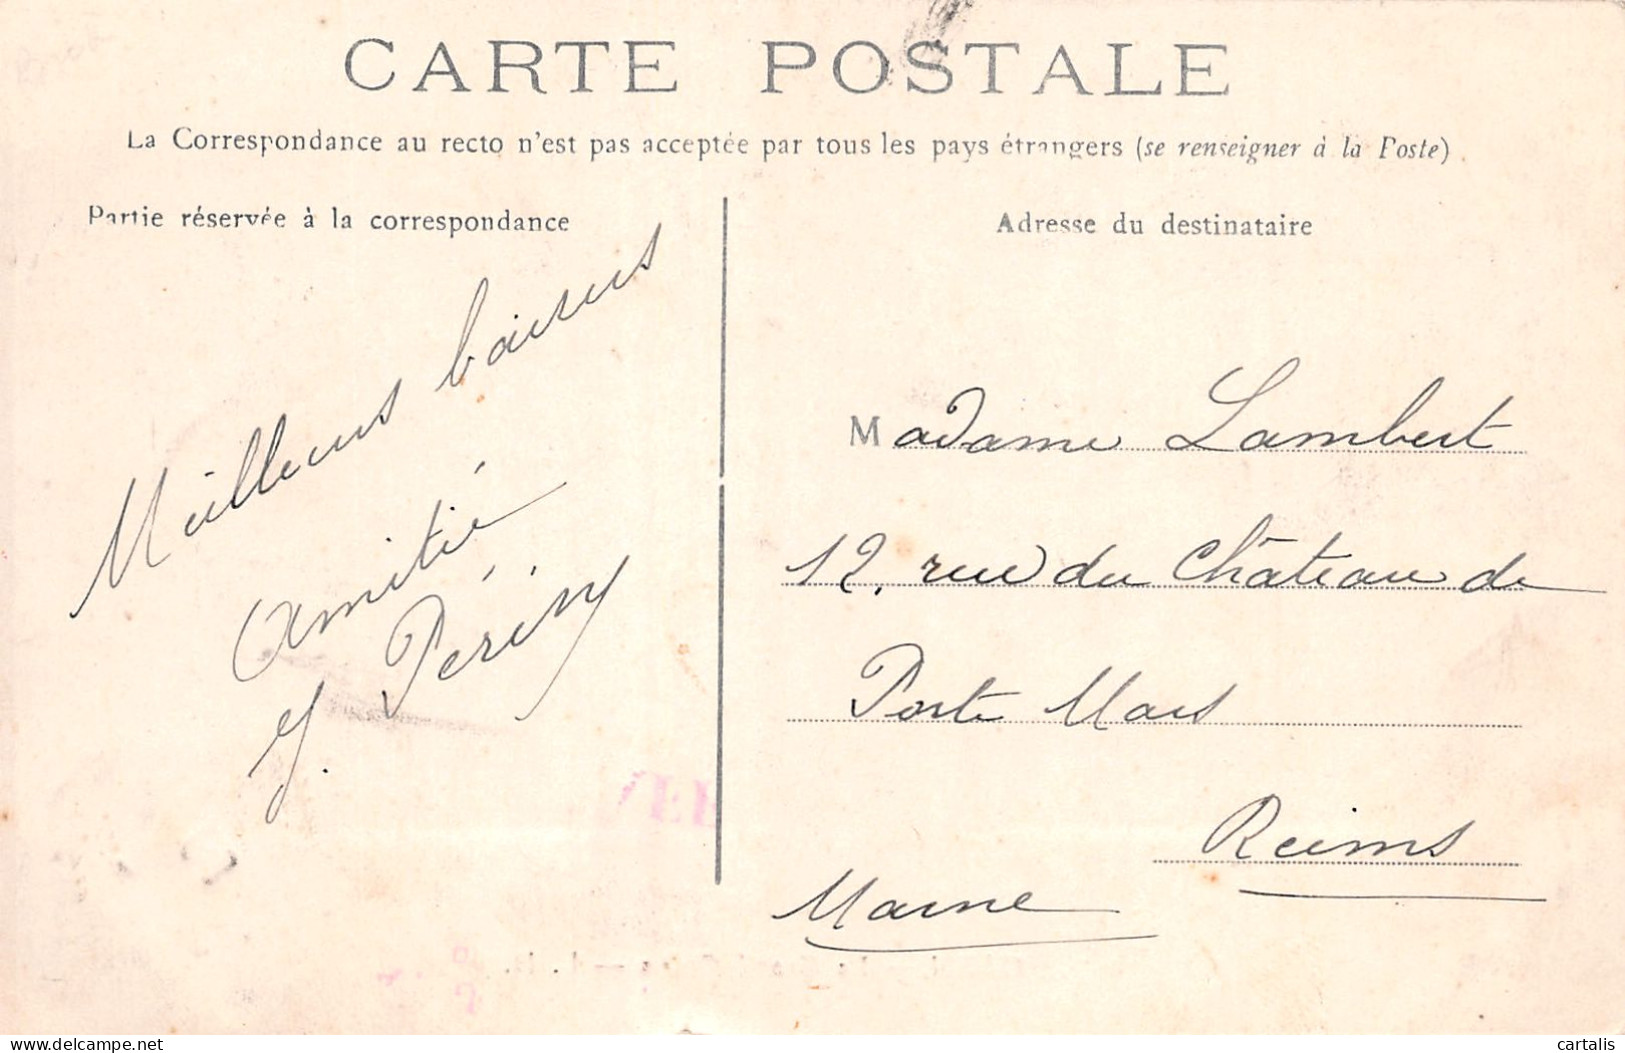 CARTE POSTALE
La Correspondance au recto n'est pas acceptée par tous les pays étrangers (se renseigner à la Poste)
Partie réservée à la correspondance
Meilleurs baisers
amitié
J. Périn
Adresse du destinataire
Madame Lambert
12, rue du Château de
Porte Mars
Reims
Marne
delcampe.net
cartalis